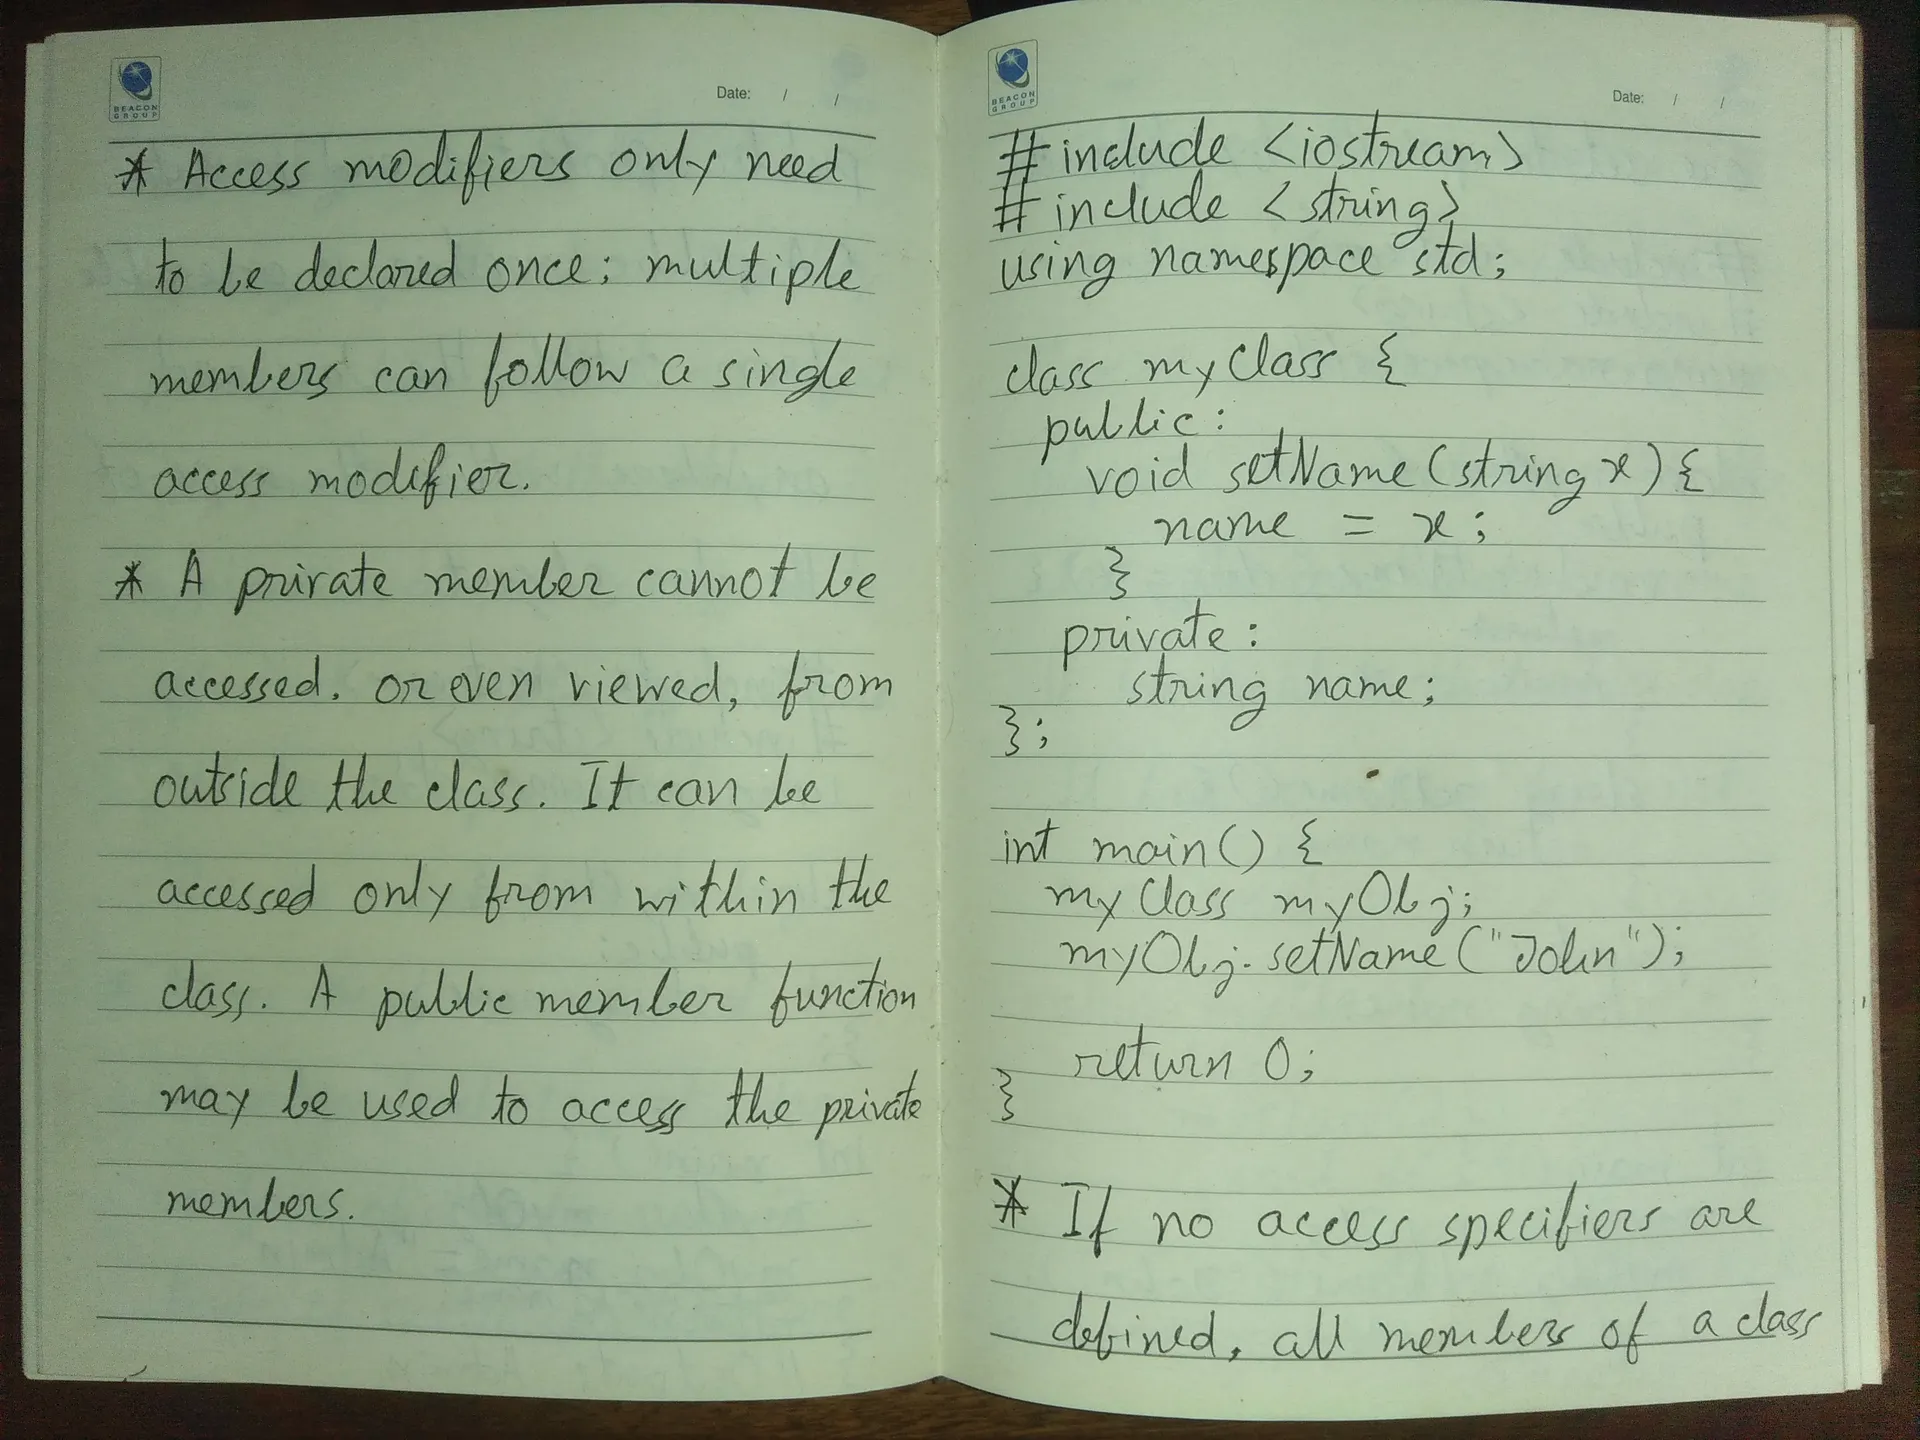 BEACON
GROUP
Date: / /
* Access modifiers only need
to be declared once; multiple
members can follow a single
access modifier.
* A private member cannot be
accessed. or even viewed, from
outside the class. It can be
accessed only from within the
class. A public member function
may be used to access the private
members.
BEACON
GROUP
Date: / /
#include <iostream>
#include <string>
using namespace std;
class myClass {
public:
void setName(string x) {
name = x;
}
private:
string name;
};
int main() {
myClass myObj;
myObj.setName("John");
return 0;
}
* If no access specifiers are
defined, all members of a class